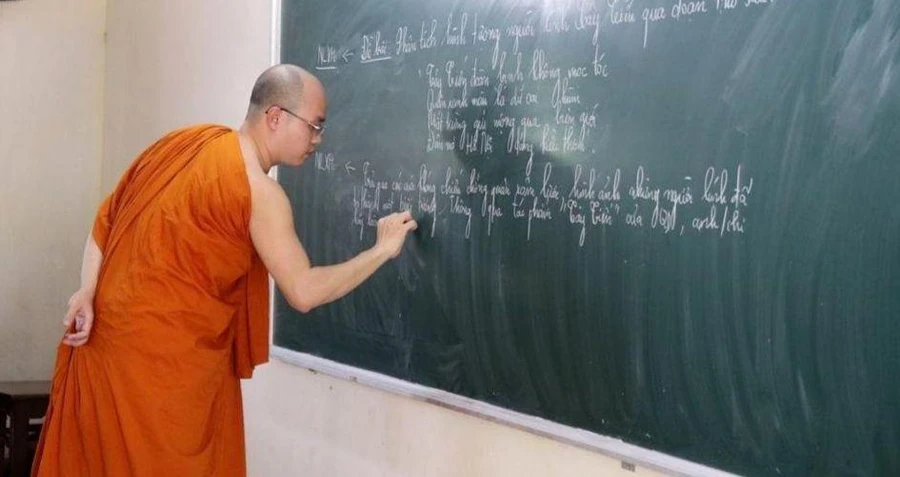 NLVH ← Đề bài: Phân tích hình tượng người lính Tây Tiến qua đoạn thơ sau:
"Tây Tiến đoàn binh không mọc tóc
Quân xanh màu lá dữ oai hùm
Mắt trừng gửi mộng qua biên giới
Đêm mơ Hà Nội dáng kiều thơm".
← Trải qua các cuộc kháng chiến chống quân xâm lược, hình ảnh những người lính đã
Thông qua tác phẩm "Tây Tiến" của QD, anh/chị